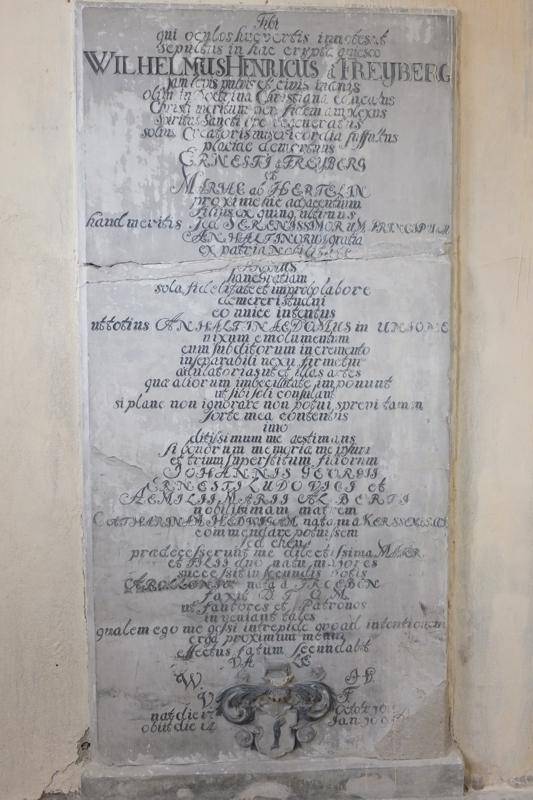 Tibi
qui oculos huc vertis innotescit
sepultus in hac crypta quiesco
WILHELMUS HENRICUS à FREYBERG
jam levis pulvis et cinis inanis
olim in doctrina Christiana educatus
Christi meritum per fidem amplexus
Spiritus Sancti ope regeneratus
solius Creatoris misericordia suffultus
placide demortuus
ERNESTI à FREYBERG
et
MARIAE ab HERTELIN
proxime hic adjacentium
filius ex quinq ultimus
haud meritis sed SERENISSIMORUM PRINCIPUM
ANHALTINORUM gratia
ex patria
hanc Gratiam
sola fidelitate et improbo labore
demereri studui
eo unice intentus
ut totius ANHALTINAE DOMUS in UNIONE
nixum emolumentum
cum subditorum incremento
inseparabili nexu firmetur
adulatorias ut et illas artes
quae aliorum imbecillitate imponunt
ut sibi soli consulant
si plane non ignorare non potui, sprevi tamen
sorte mea contentus
imo
ditissimum me aestimans
si bonorum memoria me
et trium superstitum filiorum
JOHANNIS GEORGII
ERNESTI LUDOVICI et
AEMILII MARII ALBERTI
nobilissimam matrem
CATHARINAM HEDWIGAM natam à
commendare potuissem
sed eheu
praecesserunt me dilectissima MATER
et FILII duo natu majores
successit in secundis votis
APOLLONIA nata à TREBEN
faxit D. T. O. M.
ut fautores et Patronos
inveniant tales
qualem ego me gessi intrepide quoad intentionem
erga proximum meum
effectus fatum secundabit
VALE
W.
V. F.
nat die Octobr
obiit die 14 Jan